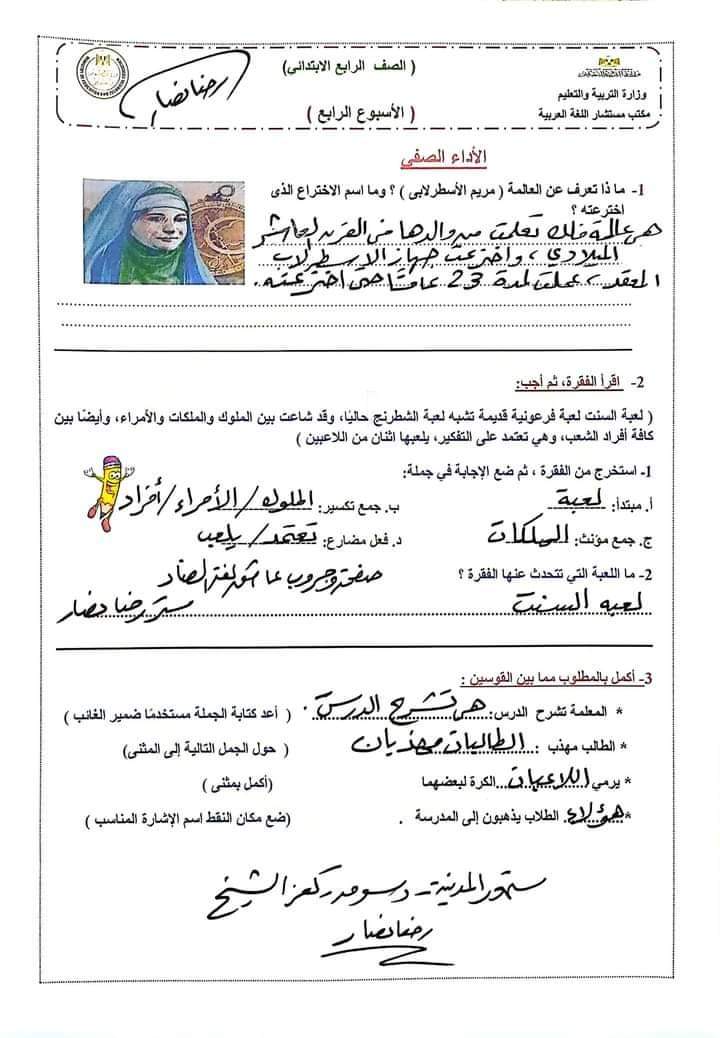 ( الصف الرابع الابتدائي)
رضا نضار
وزارة التربية والتعليم
( الأسبوع الرابع )
مكتب مستشار اللغة العربية
الأداء الصفي
1- ما ذا تعرف عن العالمة ( مريم الأسطرلابى ) ؟ وما اسم الاختراع الذى
اخترعته ؟
هى عالمة فلك تعلمت من والدها فى القرن العاشر
الميلادي، واخترعت جهاز الاسطرلاب
المعقد، عملت لمدة 23 عامًا حتى اخترعته.
2- اقرأ الفقرة، ثم أجب:
( لعبة السنت لعبة فرعونية قديمة تشبه لعبة الشطرنج حاليًا، وقد شاعت بين الملوك والملكات والأمراء، وأيضًا بين
كافة أفراد الشعب، وهي تعتمد على التفكير، يلعبها اثنان من اللاعبين )
1- استخرج من الفقرة ، ثم ضع الإجابة في جملة:
أ. مبتدأ: لعبة ب. جمع تكسير: الملوك/الأمراء/أفراد
ج. جمع مؤنث: الملكات د. فعل مضارع: تعتمد/يلعب
2- ما اللعبة التي تتحدث عنها الفقرة ؟
صفحة وجروب عاشق لغة الضاد
لعبه السنت
مستر رضا نضار
3- أكمل بالمطلوب مما بين القوسين :
* المعلمة تشرح الدرس: هى تشرح الدرس. ( أعد كتابة الجملة مستخدمًا ضمير الغائب )
* الطالب مهذب : الطالبان مهذبان ( حول الجمل التالية إلى المثنى)
* يرمي اللاعبان الكرة لبعضهما (أكمل بمثنى )
* هؤلاء الطلاب يذهبون إلى المدرسة . (ضع مكان النقط اسم الإشارة المناسب )
دسوق كفر الشيخ
رضا نضار